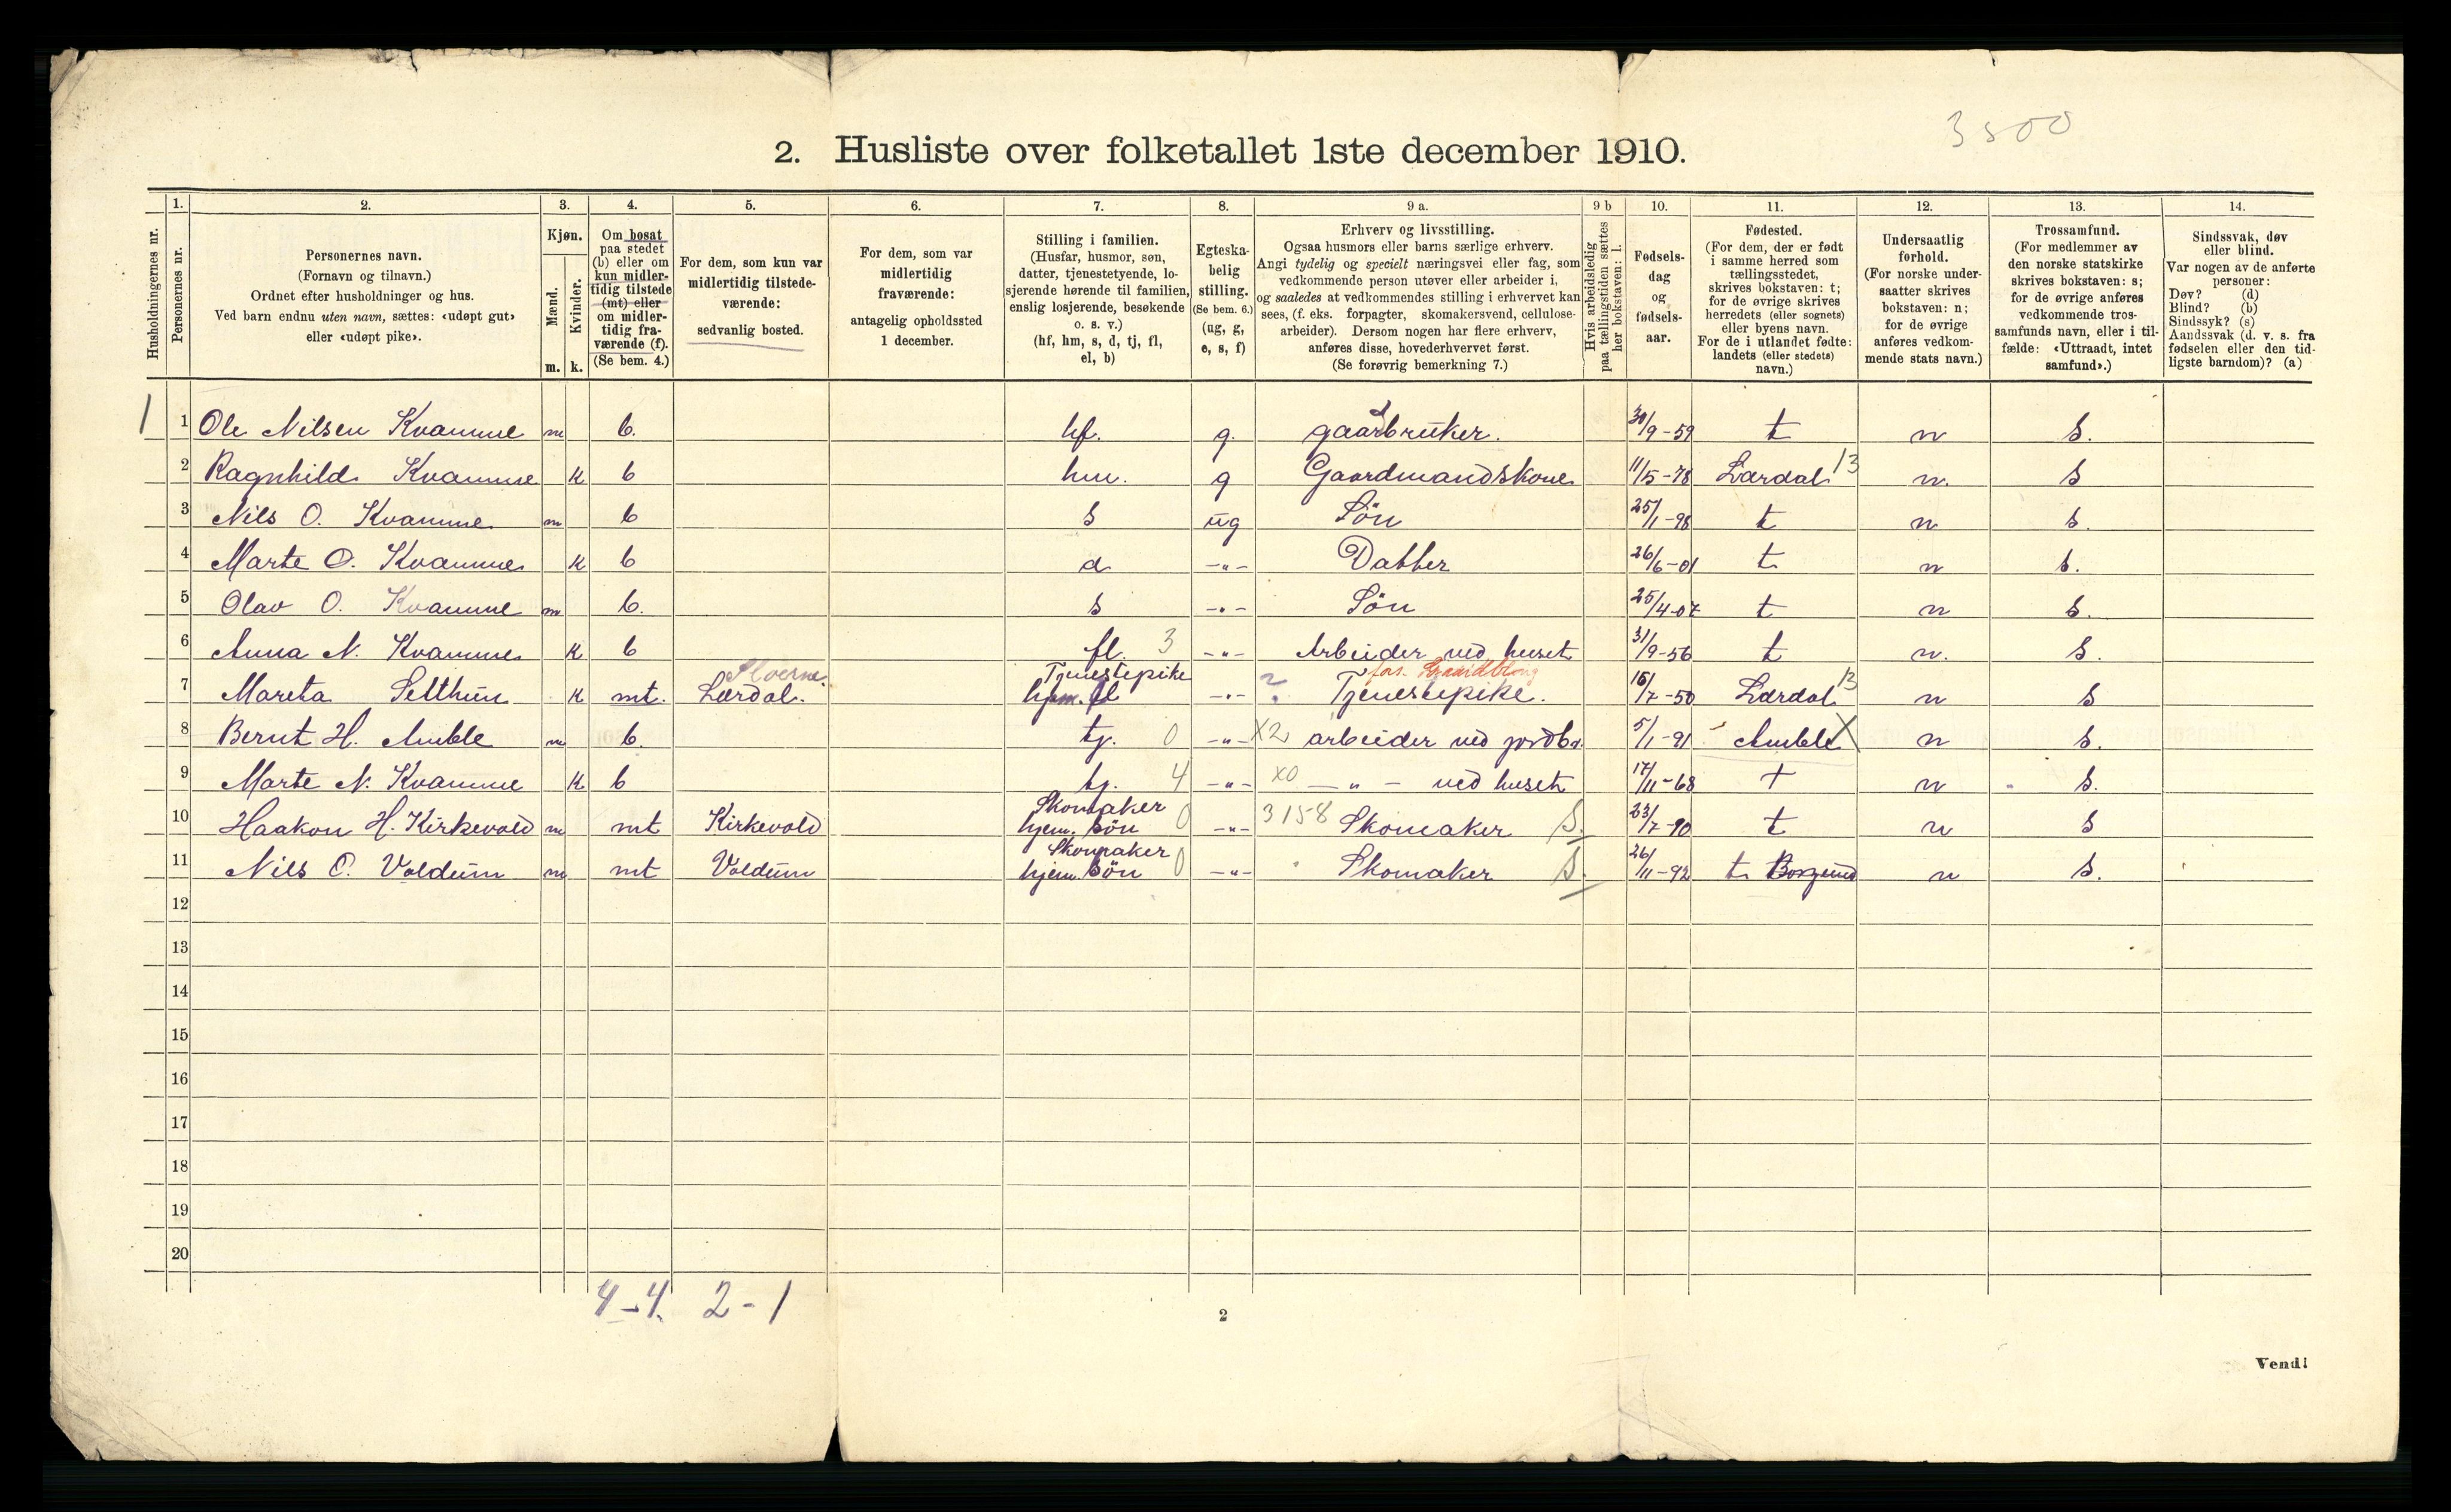 3500
2. Husliste over folketallet 1ste december 1910.
Husholdningernes nr.
1. Personernes nr.
2. Personernes navn.
(Fornavn og tilnavn.)
Ordnet efter husholdninger og hus.
Ved barn endnu uten navn, sættes: «udøpt gut»
eller «udøpt pike».
3. Kjøn.
Mænd. Kvinder.
m. k.
4. Om bosat
paa stedet
(b) eller om
kun midler-
tidig tilstede
(mt) eller
om midler-
tidig fra-
værende (f).
(Se bem. 4.)
5. For dem, som kun var
midlertidig tilstede-
værende:
sedvanlig bosted.
6. For dem, som var
midlertidig
fraværende:
antagelig opholdssted
1 december.
7. Stilling i familien.
(Husfar, husmor, søn,
datter, tjenestetyende, lo-
sjerende hørende til familien,
enslig losjerende, besøkende
o. s. v.)
(hf, hm, s, d, tj, fl,
el, b)
8. Egteska-
belig
stilling.
(Se bem. 6.)
(ug, g,
e, s, f)
9 a. Erhverv og livsstilling.
Ogsaa husmors eller barns særlige erhverv.
Angi tydelig og specielt næringsvei eller fag, som
vedkommende person utøver eller arbeider i,
og saaledes at vedkommendes stilling i erhvervet kan
sees, (f. eks. forpagter, skomakersvend, cellulose-
arbeider). Dersom nogen har flere erhverv,
anføres disse, hovederhvervet først.
(Se forøvrig bemerkning 7.)
9 b Hvis arbeidsledig
paa tællingstiden sættes
her bokstaven: l.
10. Fødsels-
dag
og
fødsels-
aar.
11. Fødested.
(For dem, der er født
i samme herred som
tællingsstedet,
skrives bokstaven: t;
for de øvrige skrives
herredets (eller sognets)
eller byens navn.
For de i utlandet fødte:
landets (eller stedets)
navn.)
12. Undersaatlig
forhold.
(For norske under-
saatter skrives
bokstaven: n;
for de øvrige
anføres vedkom-
mende stats navn.)
13. Trossamfund.
(For medlemmer av
den norske statskirke
skrives bokstaven: s;
for de øvrige anføres
vedkommende tros-
samfunds navn, eller i til-
fælde: «Uttraadt, intet
samfund».)
14. Sindssvak, døv
eller blind.
Var nogen av de anførte
personer:
Døv? (d)
Blind? (b)
Sindssyk? (s)
Aandssvak (d. v. s. fra
fødselen eller den tid-
ligste barndom)? (a)
1 1 Ole Nilsen Kvamme m b. hf. g. gaardbruker. 30/9-59 t n s.
2 Ragnhild Kvamme k b hm. g Gaardmandskone 11/5-78 Lærdal 13 n. s
3 Nils O. Kvamme m b s ug Søn 25/1-98 t n s.
4 Marte O. Kvamme k b d -"- Datter 26/6-01 t n s.
5 Olav O. Kvamme m b. s -"- Søn 25/4-07 t n s.
6 Anna N. Kvamme k b fl. 3 -"- Arbeider ved huset 31/9-56 t n. s.
Tjenestepike
7 Mareta Selthun k mt. Lærdal. hjem. fl -"- ? Tjenestepike. 16/7-50 Lærdal 13 n s
8 Bernt H. Amble m b. tj. 0 -"- X2 arbeider ved jordbr. 5/1-91 Amble X n s.
9 Marte N. Kvamme k b tj. 4 -"- X0 -"- ved huset 17/11-68 t n s.
Skomaker
10 Haakon H. Kirkevold m mt Kirkevold hjem. søn 0 -"- 3158 Skomaker S. 23/7-90 t n s
Skomaker
11 Nils O. Voldum m mt Voldum hjem. søn 0 -"- Skomaker S. 26/11-92 t. Borgund n s.
12
13
14
15
16
17
18
19
20
4-4. 2-1
2
Vend!